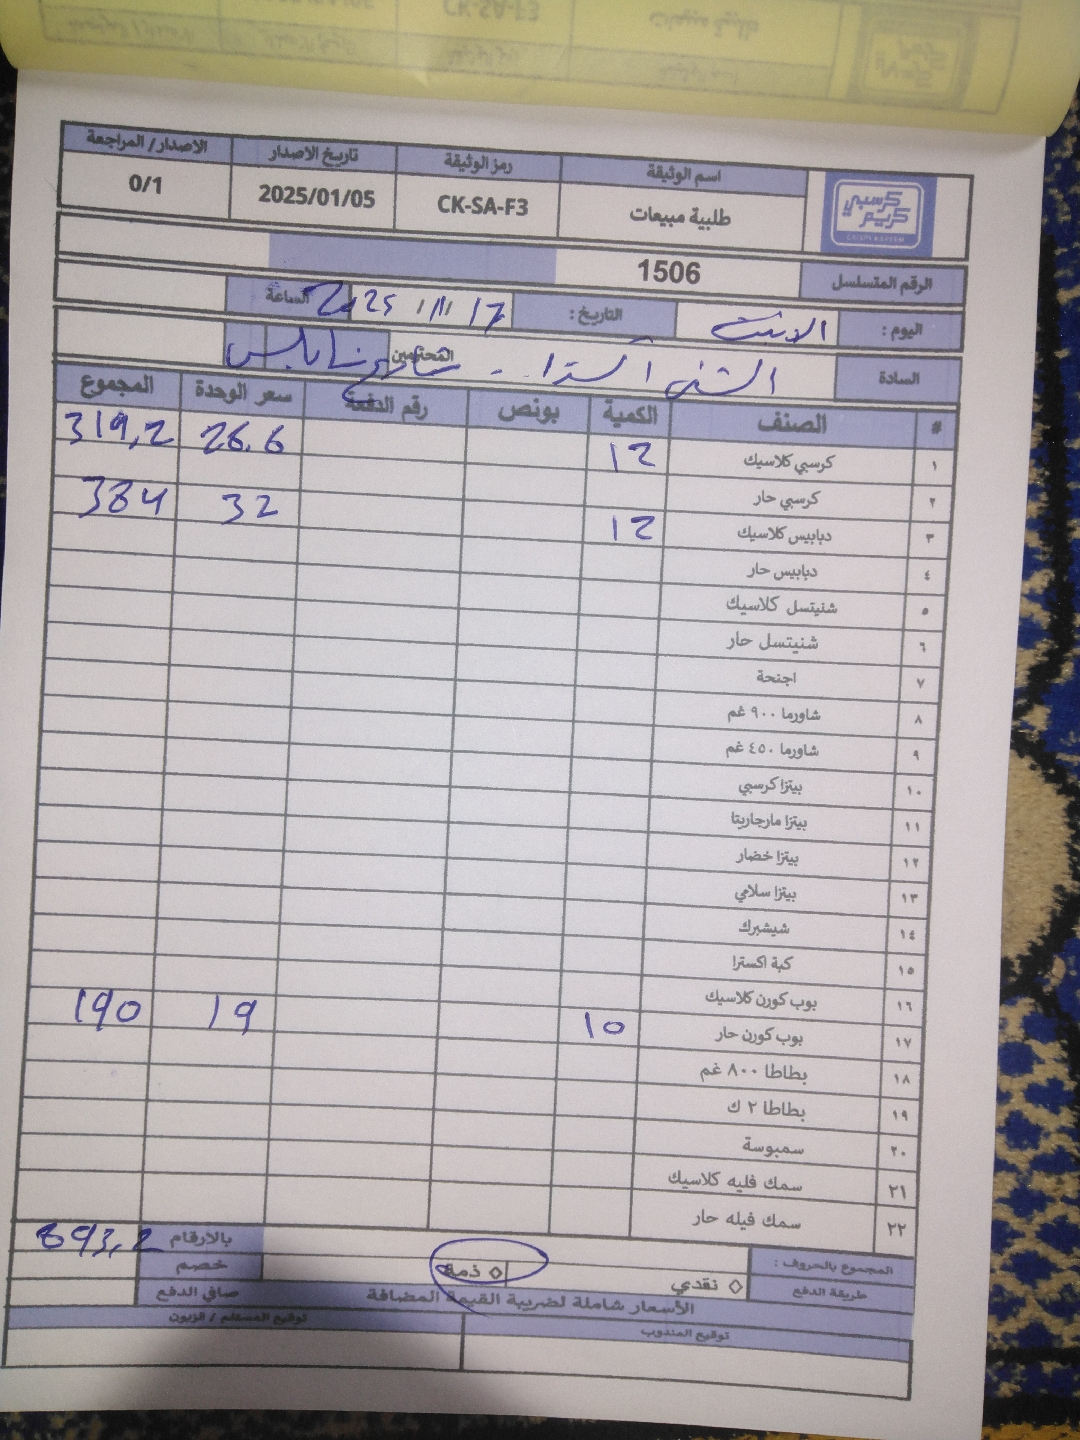 اسم الوثيقة رمز الوثيقة تاريخ الاصدار الاصدار/ المراجعة
كرسبي كريم
طلبية مبيعات CK-SA-F3 2025/01/05 0/1
الرقم المتسلسل 1506
اليوم : الاثنين التاريخ : 17/11/2025 الساعة
السادة الشني اكسترا .. شارع نابلس المحترمين
# الصنف الكمية بونص رقم الدفعة سعر الوحدة المجموع
١ كرسبي كلاسيك 12 26.6 319,2
٢ كرسبي حار
٣ دبابيس كلاسيك 12 32 384
٤ دبابيس حار
٥ شنيتسل كلاسيك
٦ شنيتسل حار
٧ اجنحة
٨ شاورما ٩٠٠ غم
٩ شاورما ٤٥٠ غم
١٠ بيتزا كرسبي
١١ بيتزا مارجاريتا
١٢ بيتزا خضار
١٣ بيتزا سلامي
١٤ شيشبرك
١٥ كبة اكسترا
١٦ بوب كورن كلاسيك
١٧ بوب كورن حار 10 19 190
١٨ بطاطا ٨٠٠ غم
١٩ بطاطا ٢ ك
٢٠ سمبوسة
٢١ سمك فليه كلاسيك
٢٢ سمك فيله حار
المجموع بالحروف : بالارقام 893,2
طريقة الدفع ◊ نقدي ◊ ذمة خصم
الأسعار شاملة لضريبة القيمة المضافة صافي الدفع
توقيع المندوب توقيع المستلم / الزبون